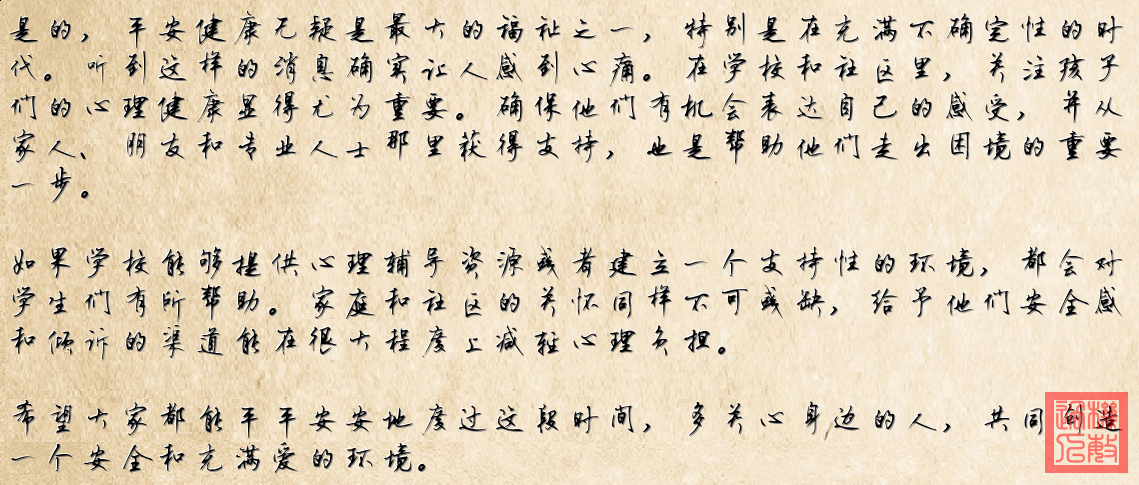 是的，平安健康无疑是最大的福祉之一，特别是在充满不确定性的时
代。听到这样的消息确实让人感到心痛。在学校和社区里，关注孩子
们的心理健康显得尤为重要。确保他们有机会表达自己的感受，并从
家人、朋友和专业人士那里获得支持，也是帮助他们走出困境的重要
一步。
如果学校能够提供心理辅导资源或者建立一个支持性的环境，都会对
学生们有所帮助。家庭和社区的关怀同样不可或缺，给予他们安全感
和倾诉的渠道能在很大程度上减轻心理负担。
希望大家都能平平安安地度过这段时间，多关心身边的人，共同创造
一个安全和充满爱的环境。